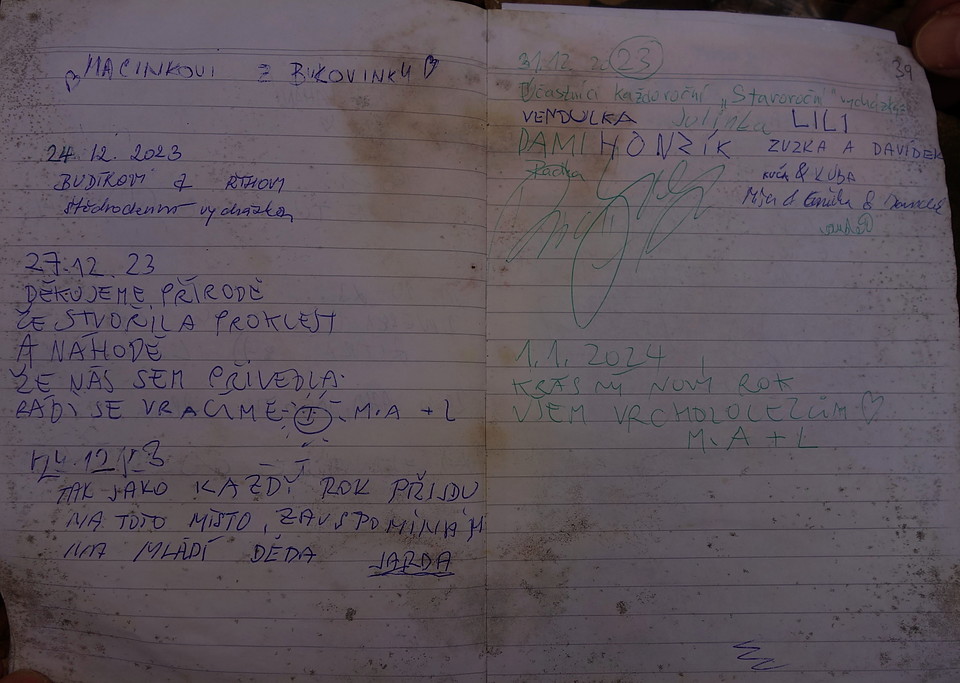 MACINKOVI Z BUKOVINKY
24. 12. 2023
BUDÍKOVI Z
vycházka
27.12. 23
DĚKUJEME PŘÍRODĚ
ŽE STVOŘILA PROKLEST
A NÁHODĚ
ŽE NÁS SEM PŘIVEDLA.
RÁDI SE VRACÍME M.A + L
TAK JAKO KAŽDÝ ROK PŘIJDU
NA TOTO MÍSTO, ZAVSPOMÍNÁM
NA MLÁDÍ DĚDA JARDA
39
31.12. 2023
Účastníci každoroční „Staroroční" vycházky
VENDULKA Julinka LILI
DAMI HONZÍK ZUZKA A DAVÍDEK
Radka & KUBA
1.1. 2024
KRÁSNÝ NOVÝ ROK
VŠEM VRCHOLOLEZCŮM
M.A + L